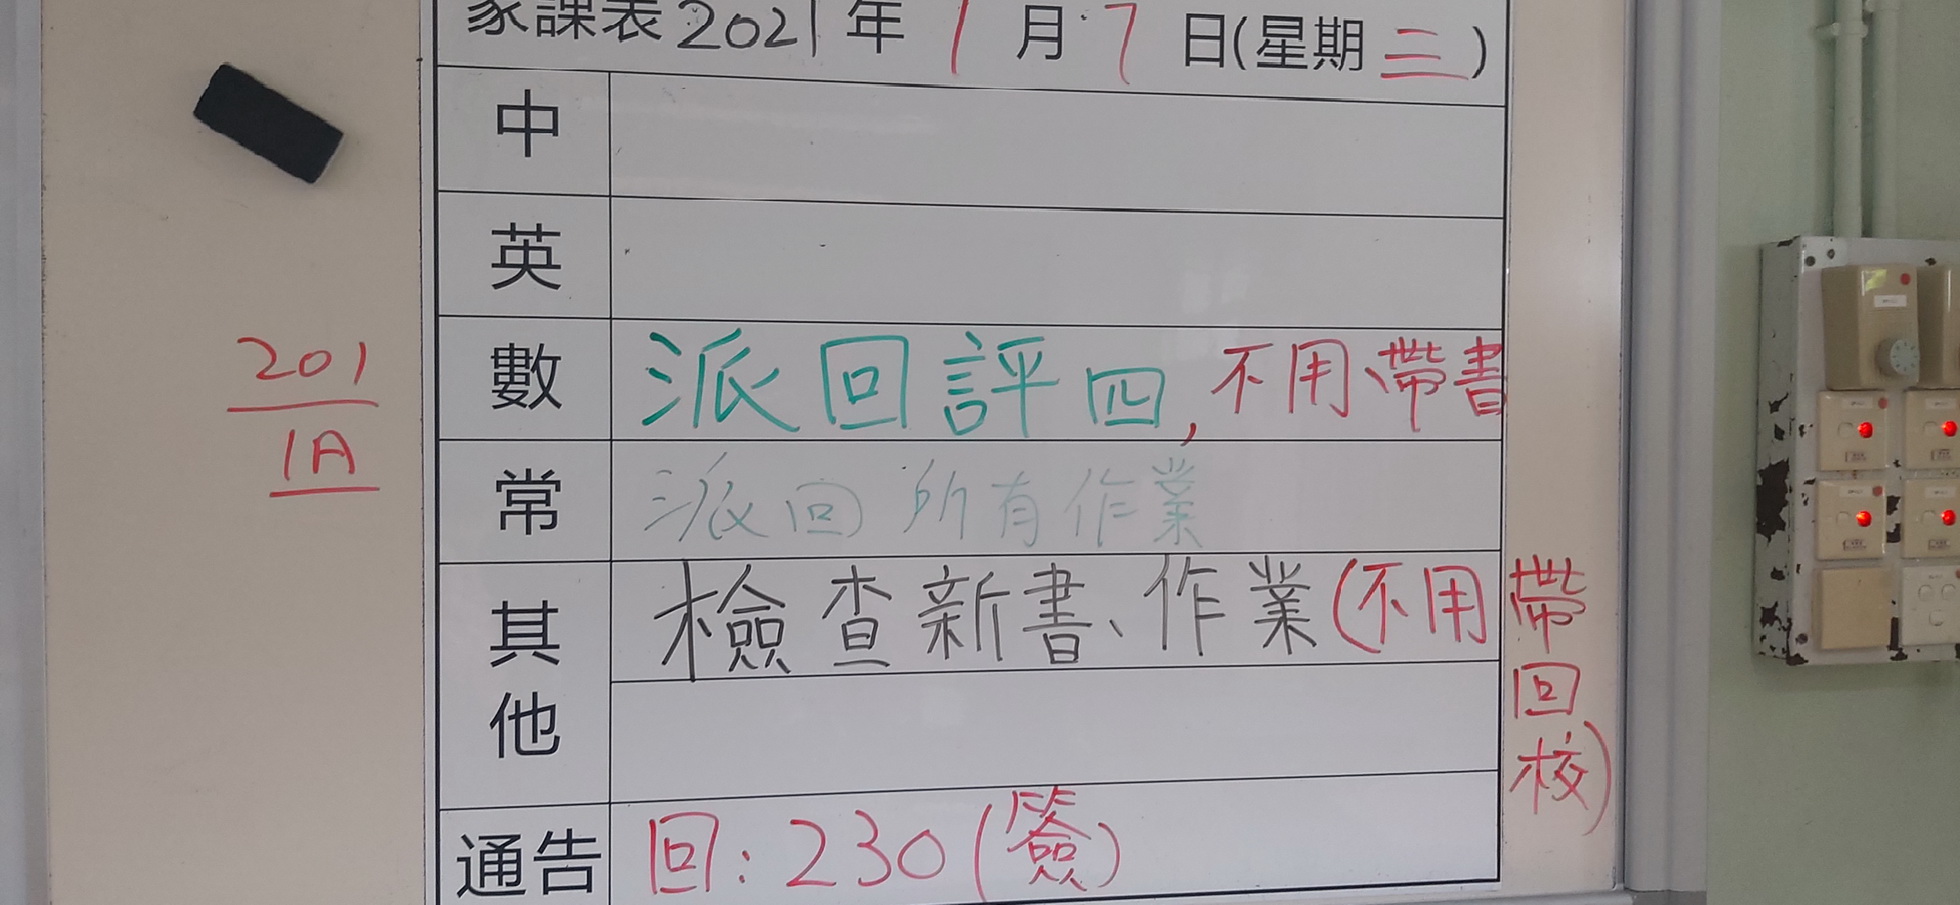 家課表2021年1月7日(星期三)
中
英
數 派回評四,不用帶書
常 派回所有作業
其他 檢查新書、作業(不用帶回校)
通告 回:230(簽)
201
1A